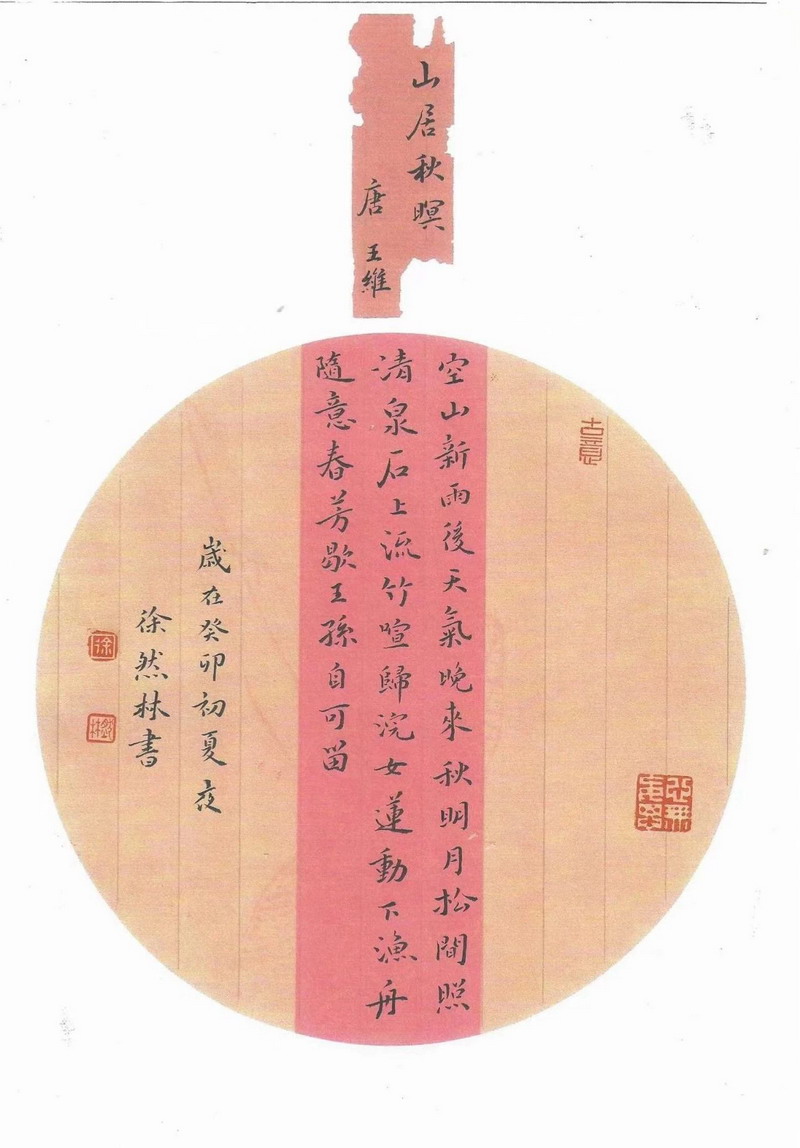 山居秋暝
唐 王維
空山新雨後天氣晚來秋明月松間照
清泉石上流竹喧歸浣女蓮動下漁舟
隨意春芳歇王孫自可留
歲在癸卯初夏夜
徐然林書
古意
徐
然林